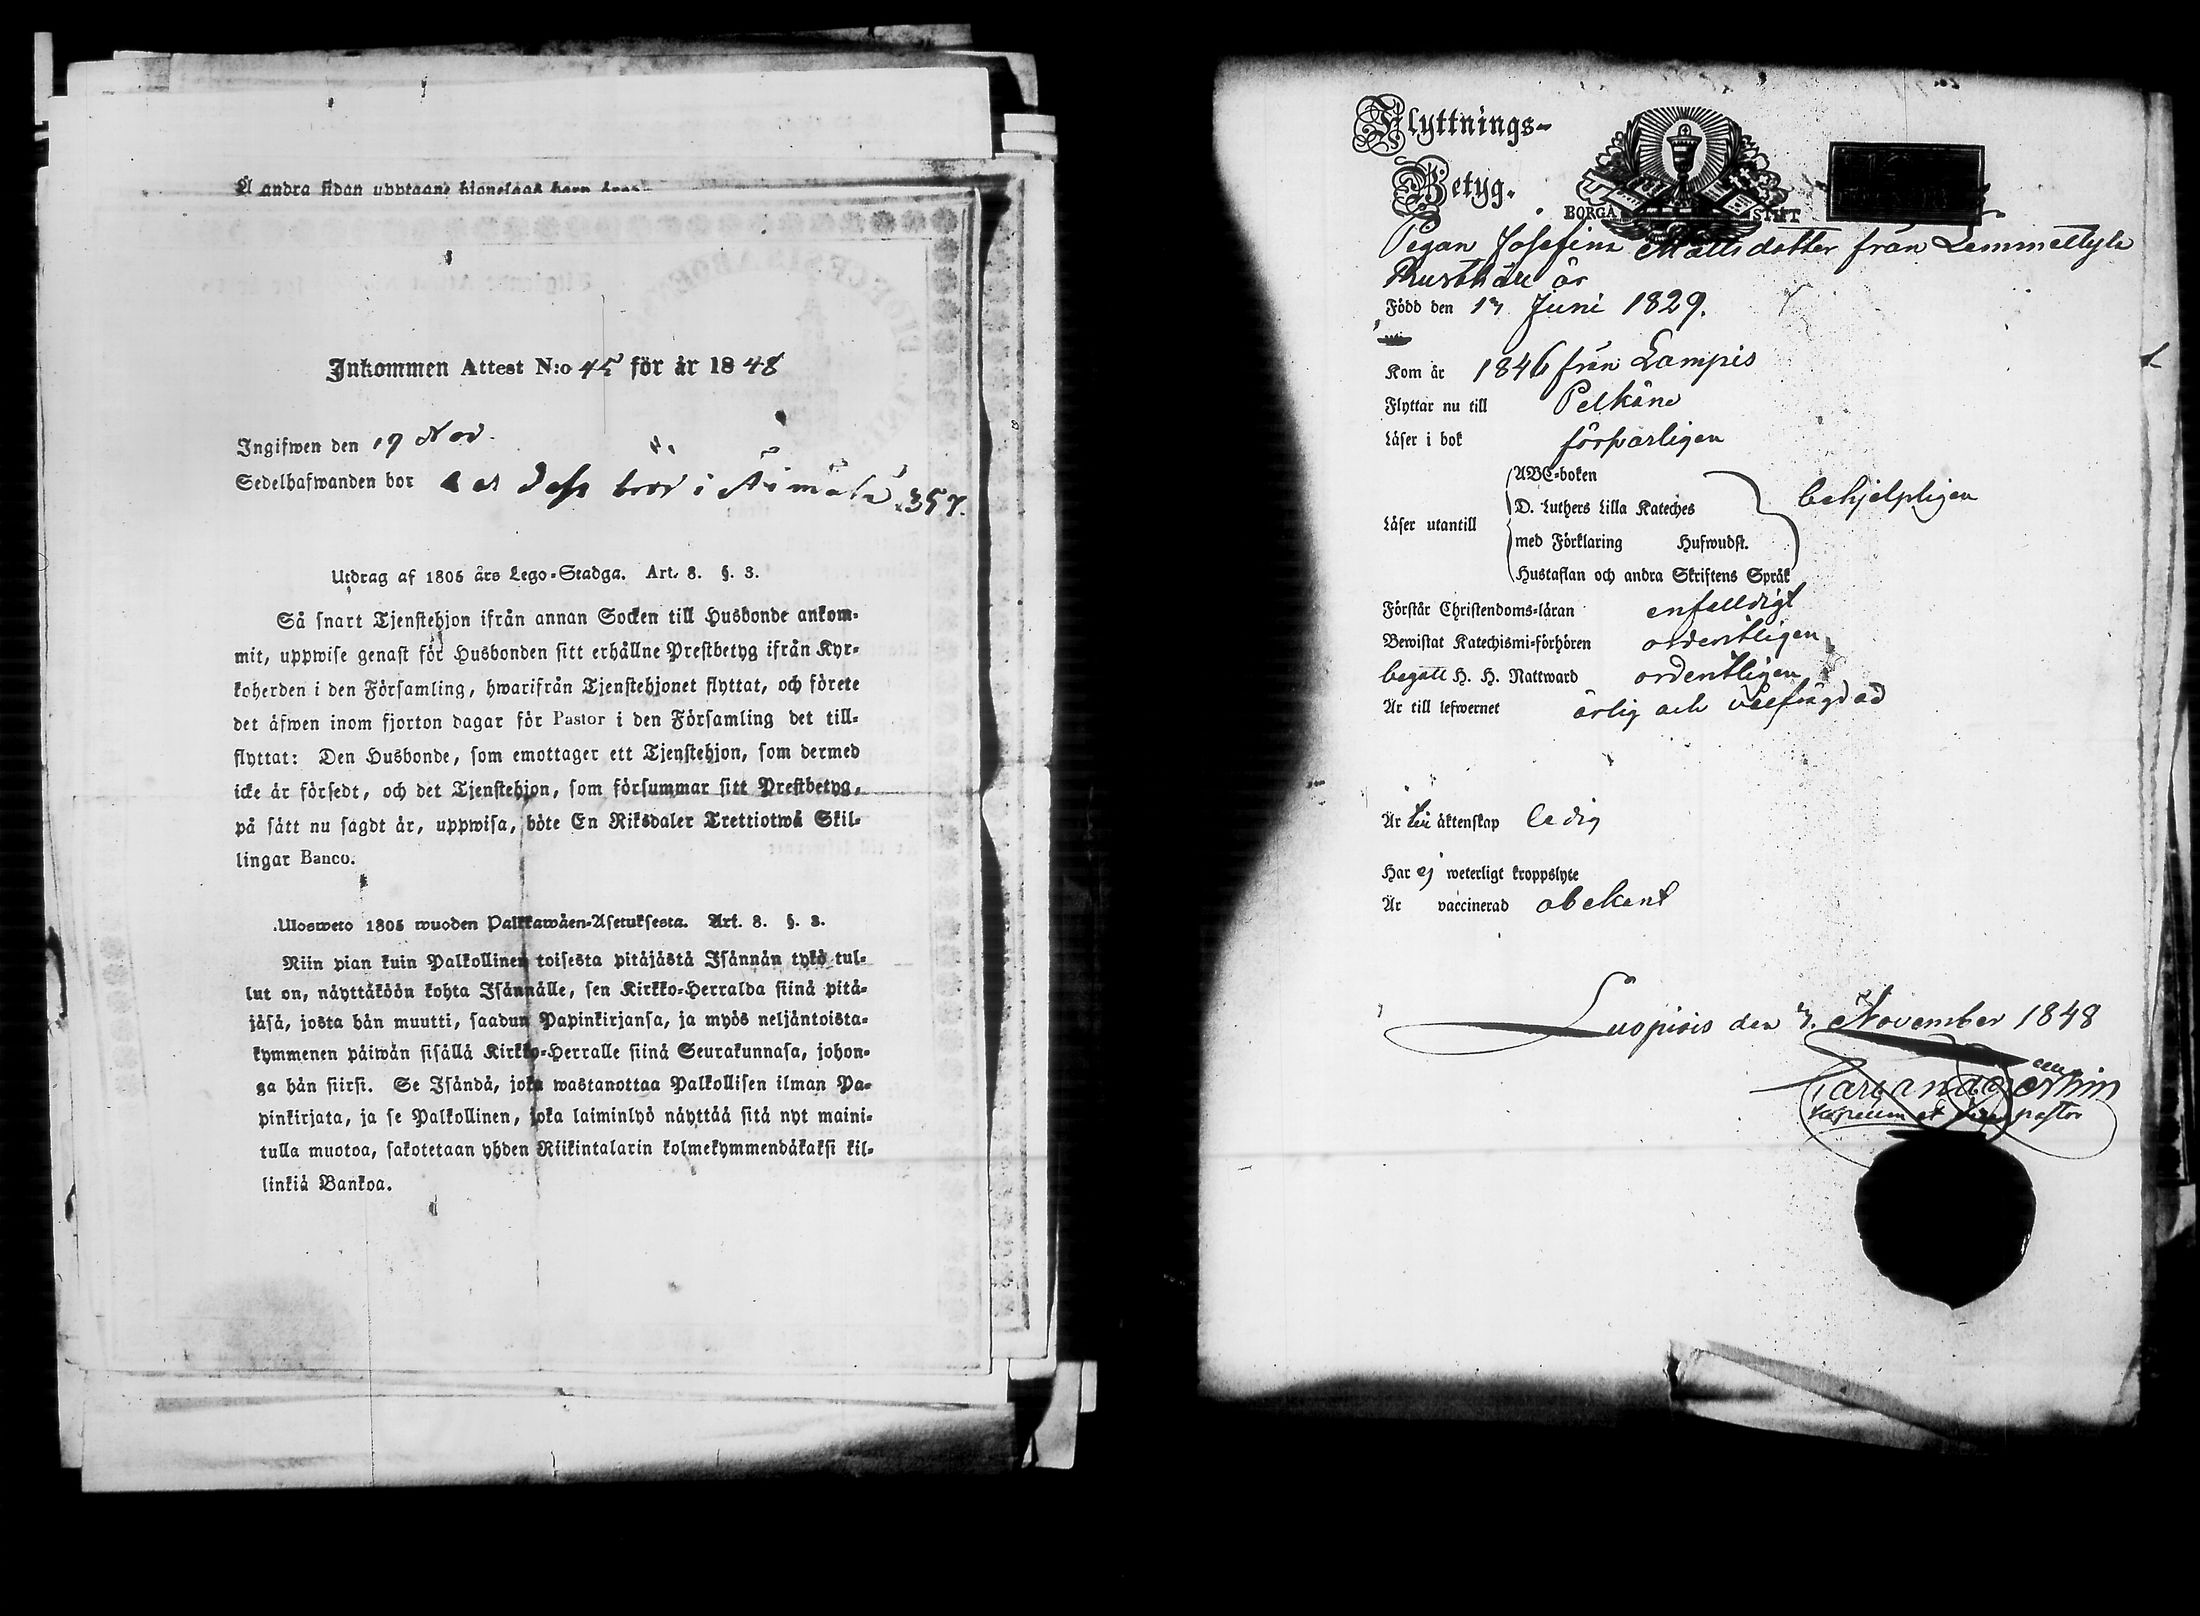 Å andra sidan upptagne hjonelags barn äro:
Inkommen Attest N:o 45 för år 1848
Ingifwen den 19 Nov.
Sedelhafwanden bor i 357.
Utdrag af 1805 års Lego-Stadga. Art. 8. §. 3.
Så snart Tjenstehjon ifrån annan Socken till Husbonde ankom-
mit, uppwise genast för Husbonden sitt erhållne Prestbetyg ifrån Kyr-
koherden i den Församling, hwarifrån Tjenstehjonet flyttat, och förete
det äfwen inom fjorton dagar för Pastor i den Församling det till-
flyttat: Den Husbonde, som emottager ett Tjenstehjon, som dermed
icke är försedt, och det Tjenstehjon, som försummar sitt Prestbetyg,
på sätt nu sagdt är, uppwisa, böte En Riksdaler Trettiotwå Skil-
lingar Banco.
Ulosweto 1805 wuoden Palkkawäen-Asetuksesta. Art. 8. §. 3.
Niin pian kuin Palkollinen toisesta pitäjästä Isännän tykö tul-
lut on, näyttäköön kohta Isännälle, sen Kirkko-Herralda siinä pitä-
jäsä, josta hän muutti, saadun Papinkirjansa, ja myös neljäntoista-
kymmenen päiwän sisällä Kirkko-Herralle siinä Seurakunnasa, johon-
ga hän siirsi. Se Isändä, joka wastanottaa Palkollisen ilman Pa-
pinkirjata, ja se Palkollinen, joka laiminlyö näyttää sitä nyt maini-
tulla muotoa, sakotetaan yhden Riikintalarin kolmekymmendäkaksi kil-
linkiä Bankoa.
Flyttnings-
Betyg.
BORGÅ STIFT
Pigan Josefina Mattsdotter från Lemmettylä
Rusthåll är
Född den 17 Juni 1829.
Kom år 1846 från Lampis
Flyttar nu till Pelkäne
Läser i bok försvarligen
Läser utantill
ABC-boken
D. Luthers Lilla Kateches
med Förklaring Hufwudst.
Hustaflan och andra Skriftens Språk
behjelpligen
Förstår Christendoms-läran enfaldigt
Bewistat Katechismi-förhören ordentligen
begått H. H. Nattward ordentligen
Är till lefwernet ärlig och välfrägdad
Är till äktenskap ledig
Har ej weterligt kroppslyte
Är vaccinerad obekant
Luopiois den 7. November 1848
pastor